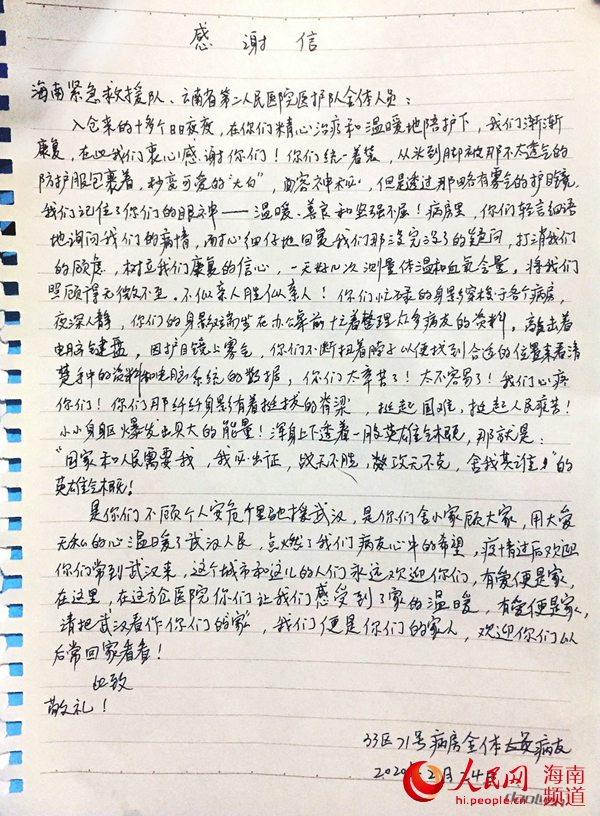 感谢信
海南紧急救援队、云南省第二人民医院医护队全体人员：
入仓来的十多个日日夜夜，在你们精心治疗和温暖地陪护下，我们渐渐
康复，在此我们衷心感谢你们！你们统一着装，从头到脚被那不太透气的
防护服包裹着，秒变可爱的"大白"，面容神秘，但是透过那略有雾气的护目镜，
我们记住了你们的眼神——温暖、善良和坚强不屈！病房里，你们轻言细语
地询问我们的病情，耐心细仔地回复我们那没完没了的疑问，打消我们
的顾虑，树立我们康复的信心，一天好几次测量体温和血氧含量，将我们
照顾得无微不至。不似亲人胜似亲人！你们忙碌的身影穿梭于各个病房，
夜深人静，你们的身影端坐在办公桌前忙着整理众多病友的资料，敲击着
电脑键盘，因护目镜上雾气，你们不断扭着脖子以便找到合适的位置来看清
楚手中的资料和电脑系统的数据，你们太辛苦了！太不容易了！我们心疼
你们！你们那纤纤身影有着挺拔的脊梁，挺起国难，挺起人民疾苦！
小小身躯爆发出巨大的能量！浑身上下透着一股英雄气概，那就是：
"国家和人民需要我，我必出征，战无不胜，攻无不克，舍我其谁"的
英雄气概！
是你们不顾个人安危千里驰援武汉，是你们舍小家顾大家，用大爱
无私的心温暖了武汉人民，点燃了我们病友心中的希望，疫情过后欢迎
你们常到武汉来，这个城市和这儿的人们永远欢迎你们，有爱便是家，
在这里，在这方仓医院你们让我们感受到了家的温暖，有爱便是家，
请把武汉看作你们的家，我们便是你们的家人，欢迎你们以
后常回家看看！
此致
敬礼！
33区71号病房全体病友
2020年2月24日
人民网 海南频道
hi.people.cn